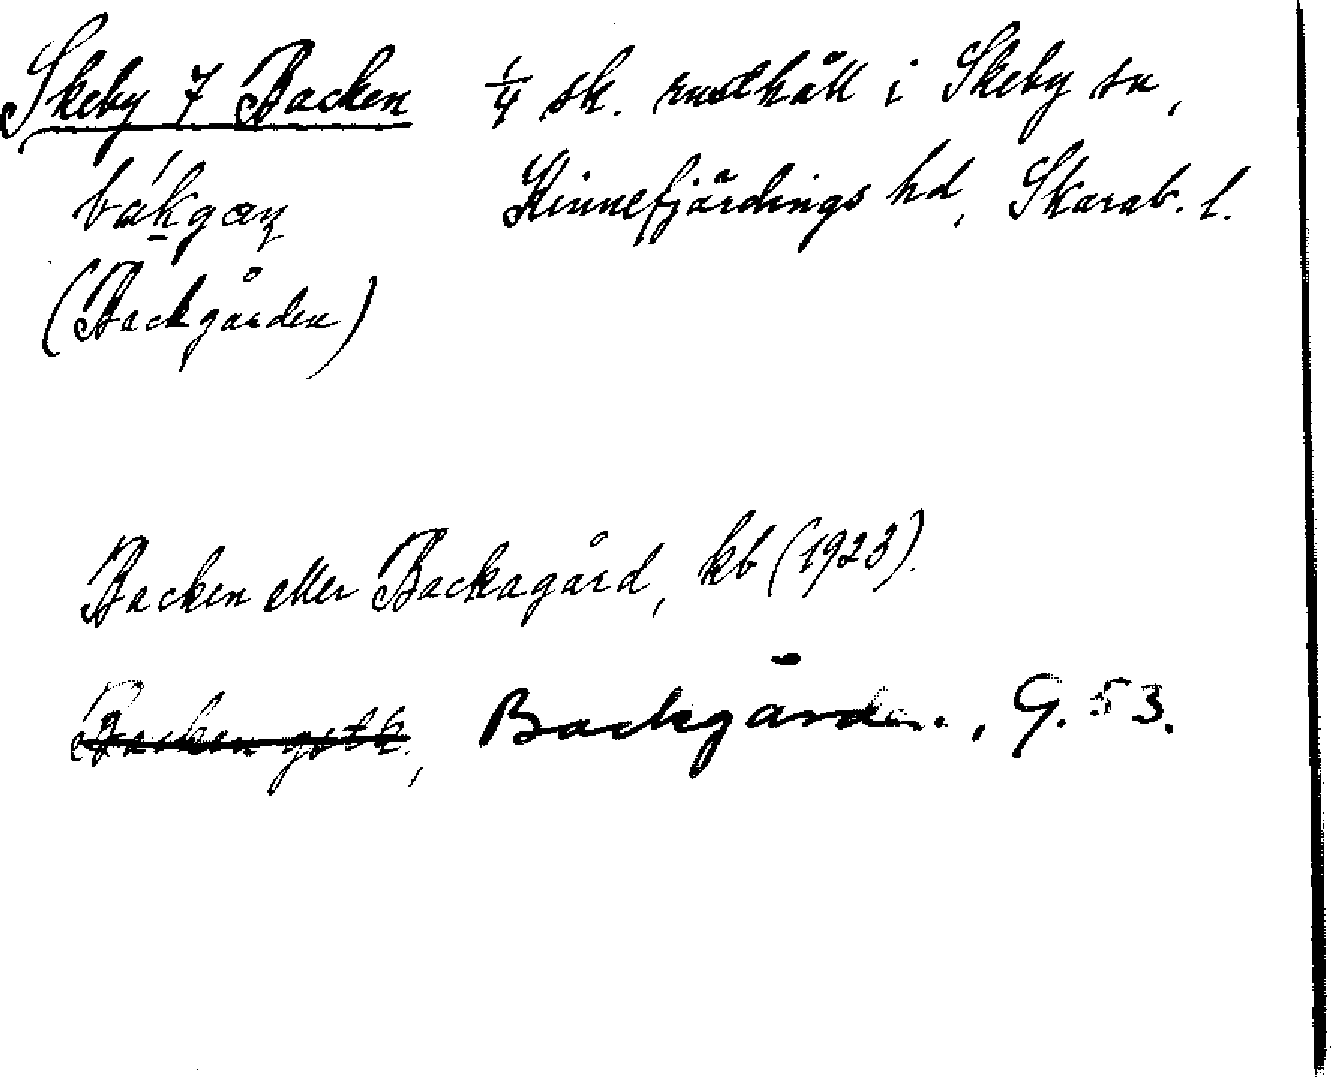 Skeby 7 Backen 1/4 sk. rusthåll i Skeby sn,
Kinnefjärdings hd, Skarab. l.
(Backgården)
Backen eller Backagård, kb (1923).
Backen gstk., Backgården., G. 53.